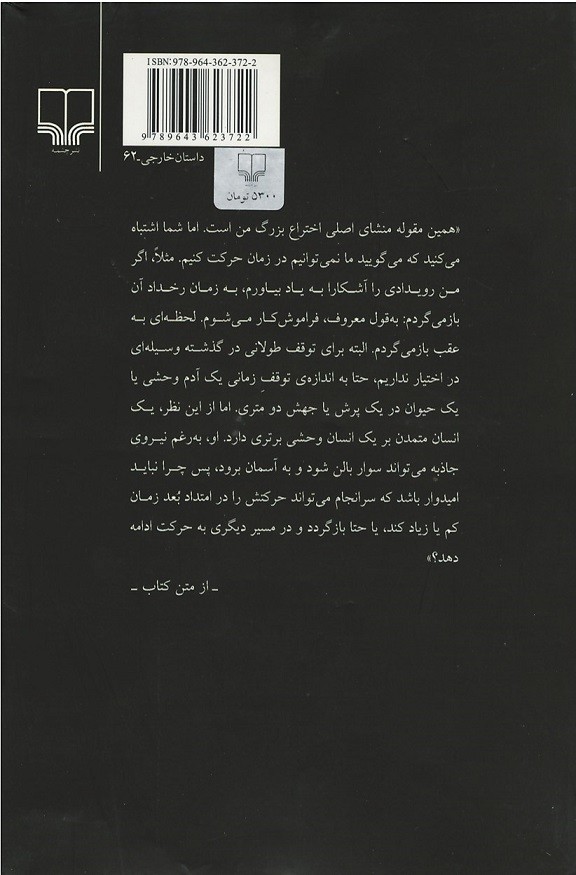 ISBN: 978-964-362-372-2
9 789643 623722
نشر چشمه
داستان خارجی-۶۲
۵۳۰۰ تومان
«همین مقوله منشای اصلی اختراع بزرگ من است. اما شما اشتباه
می‌کنید که می‌گویید ما نمی‌توانیم در زمان حرکت کنیم. مثلاً، اگر
من رویدادی را آشکارا به یاد بیاورم، به زمان رخداد آن
بازمی‌گردم: به‌قول معروف، فراموش‌کار می‌شوم. لحظه‌ای به
عقب بازمی‌گردم. البته برای توقف طولانی در گذشته وسیله‌ای
در اختیار نداریم، حتا به اندازه‌ی توقفِ زمانی یک آدم وحشی یا
یک حیوان در یک پرش یا جهش دو متری. اما از این نظر، یک
انسان متمدن بر یک انسان وحشی برتری دارد. او، به‌رغم نیروی
جاذبه می‌تواند سوار بالن شود و به آسمان برود، پس چرا نباید
امیدوار باشد که سرانجام می‌تواند حرکتش را در امتداد بُعد زمان
کم یا زیاد کند، یا حتا بازگردد و در مسیر دیگری به حرکت ادامه
دهد؟»
ـ از متن کتاب ـ